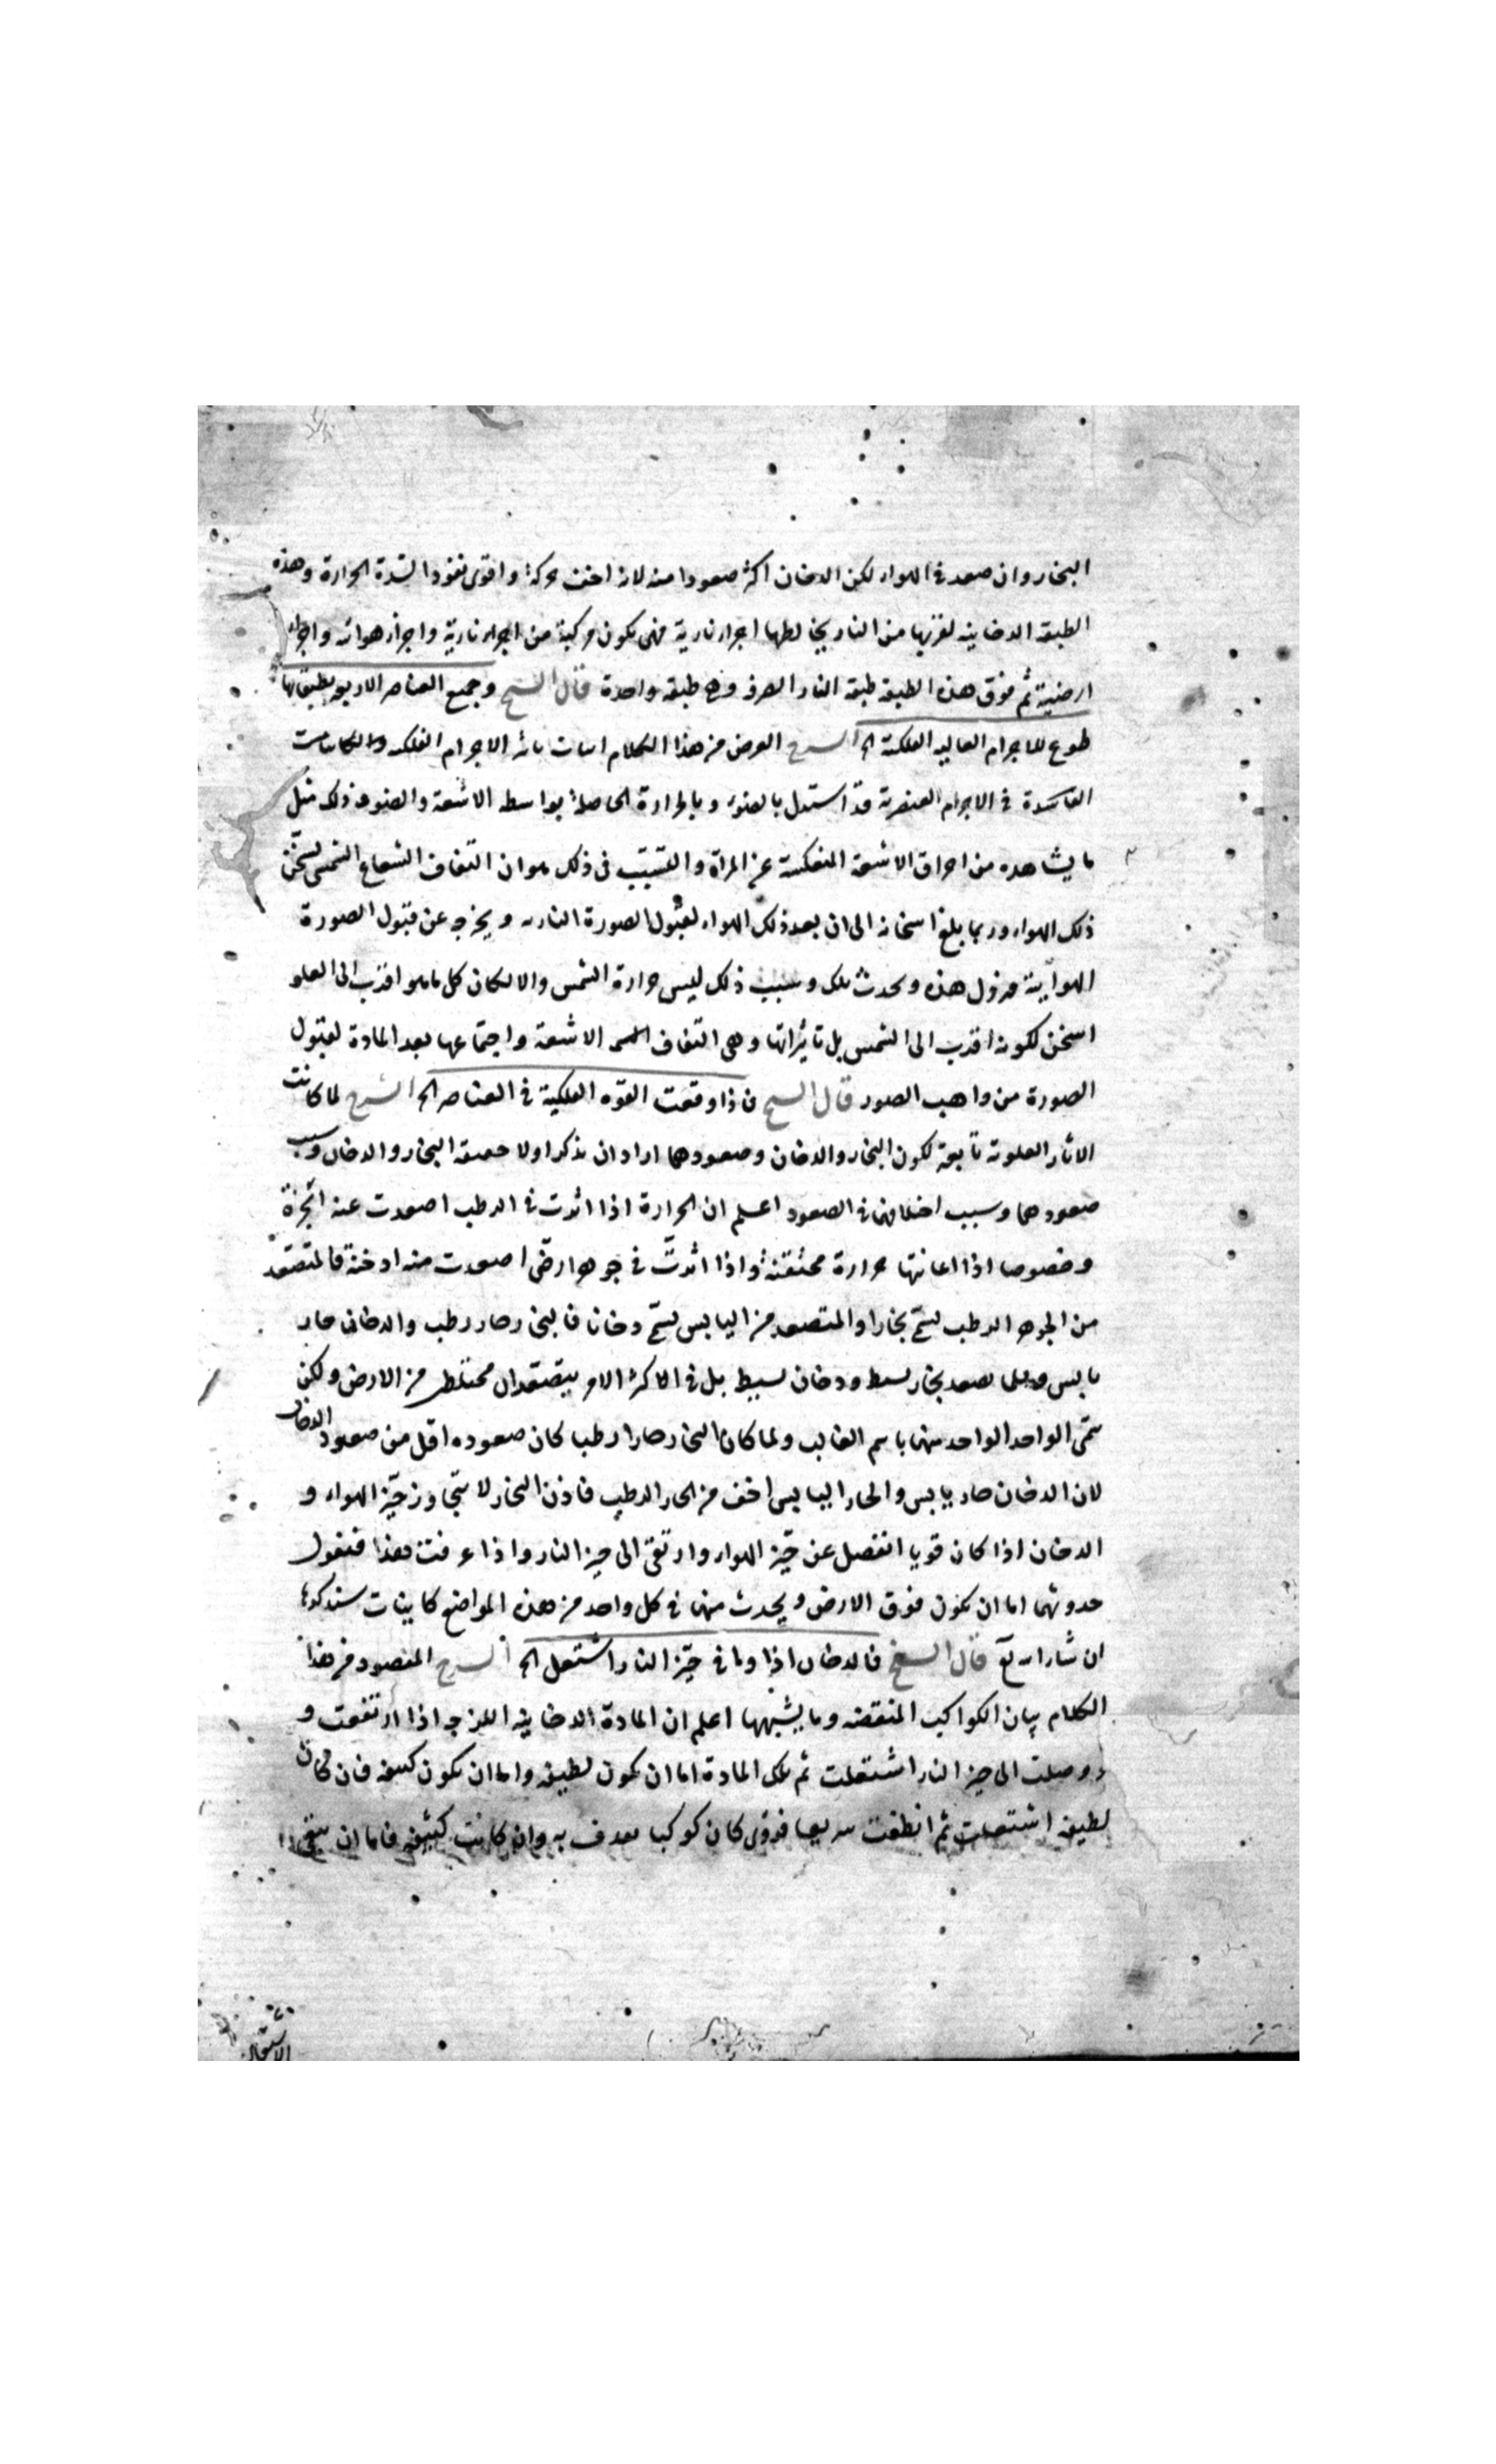 البخار وان صعد فى الهواء لكن الدخان اكثر صعودا منه لانه اخف حركة واقوى نفوذا لشدة الحرارة وهذه
الطبقة الدخانيه لقربها من النار يخالطها اجزاء نارية فهى يكون مركبة من اجزاء نارية واجزاء هوائه واجزاء
ارضية ثم فوق هذه الطبقه طبقه النار الصرف وهى طبقه واحدة قال الشيخ وجميع العناصر الاربعه بطبقاتها
طوع للاجرام العاليه الفلكية الخ الشرح الغرض من هذا الكلام اثبات تاثير الاجرام الفلكيه والكائنات
الفاسدة فى الاجرام العنصرية قد استدل بالضوء وبالحرارة الحاصلة بواسطه الاشعة والضوء وذلك مثل
ما يشاهده من احراق الاشعة المنعكسة عن المرآة والسبب فى ذلك هو ان التفاف الشعاع الشمسى يسخن
ذلك الهواء وربما بلغ اسخانه الى ان يعد ذلك الهواء لقبول الصورة الناريه ويخرجه عن قبول الصورة
الهوائية فيزول هذه ويحدث تلك وسبب ذلك ليس حرارة الشمس والا لكان كل ما هو اقرب الى العلو
اسخن لكونه اقرب الى الشمس بل تاثيراتها وهى التفاف الاشعة واجتماعها يعد المادة لقبول
الصورة من واهب الصور قال الشيخ فاذا وقعت القوه الفلكية فى العناصر الخ الشرح لما كانت
الاثار العلوية تابعة لكون البخار والدخان وصعودهما اراد ان يذكر اولا حقيقه البخار والدخان وسبب
صعودهما وسبب اختلافهما فى الصعود اعلم ان الحرارة اذا اثرت فى الرطب اصعدت عنه ابخرة
وخصوصا اذا اعانتها حرارة محتقنة واذا اثرت فى جوهر ارضى اصعدت منه ادخنة فالمتصعد
من الجوهر الرطب يسمى بخارا والمتصعد من اليابس يسمى دخانا فالبخار حار رطب والدخان حار
يابس وقلما يصعد بخار بسيط ودخان بسيط بل فى اكثر الامر يتصعدان مختلطين من الارض ولكن
سمى الواحد الواحد منهما باسم الغالب ولما كان البخار حارا رطبا كان صعوده اقل من صعود الدخان
لان الدخان حار يابس والحار اليابس اخف من الحار الرطب فاذن البخار لا يتجاوز حيز الهواء و
الدخان اذا كان قويا انفصل عن حيز الهواء وارتقى الى حيز النار واذا عرفت هذا فنقول
حدوثهما اما ان يكون فوق الارض ويحدث منهما فى كل واحد من هذه المواضع كاينات سنذكرها
ان شاء الله تع قال الشيخ فالدخان اذا وافى حيز النار اشتعل الخ الشرح المقصود من هذا
الكلام بيان الكواكب المنقضه وما يشبهها اعلم ان المادة الدخانيه اللزجه اذا ارتفعت و
وصلت الى حيز النار اشتعلت ثم تلك المادة اما ان يكون لطيفه واما ان يكون كثيفه فان كانت
لطيفه اشتعلت ثم انطفت سريعا فرؤى كان كوكبا يقذف به وان كانت كثيفه فاما ان يبقى